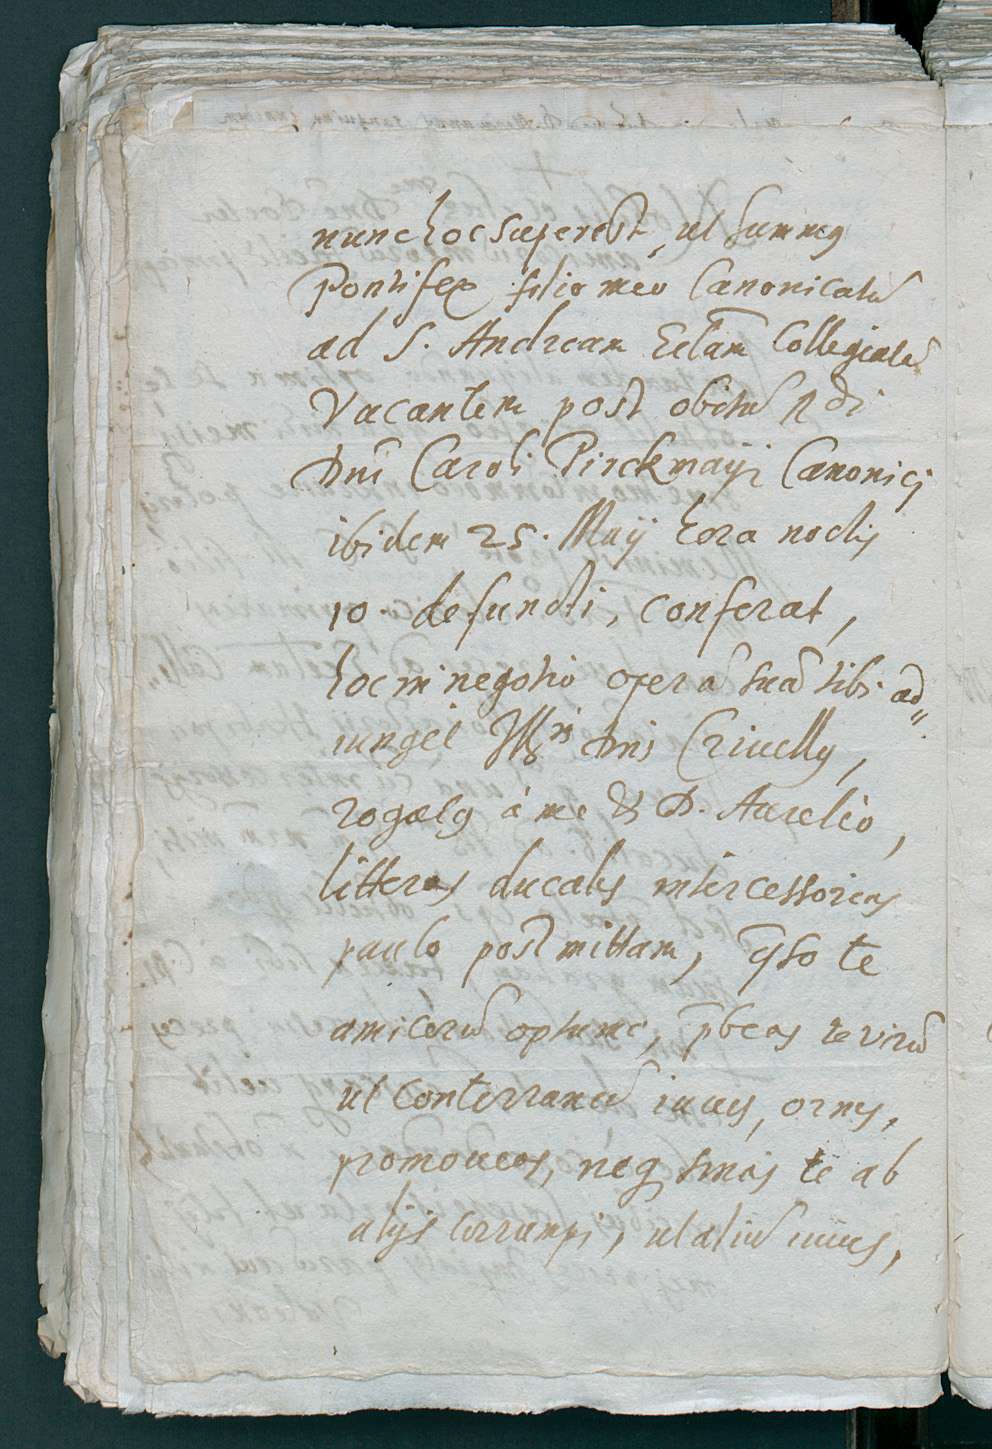 nunc hoc superest, ut summus
Pontifex filio meo Canonicatũ
ad S. Andream Eccl̃am Collegiatã
Vacantem post obitũ R̃di
Dñi Caroli Pirckmayr Canonici
ibidem 25. Maij hora noctis
10. defuncti, conferat,
hoc in negotio operã suã tibi ad„
iunget Ill^ris Dñi Crivelli,
rogatus à me & D. Aurelio,
litteras ducales intercessorias
paulo post mittam, q̃so te
amicorũ optime, p̃beas te virũ
ut conterraneũ iuves, ornes,
promoveas, neq sinas te ab
alijs corrumpi, ut aliũ iuves,